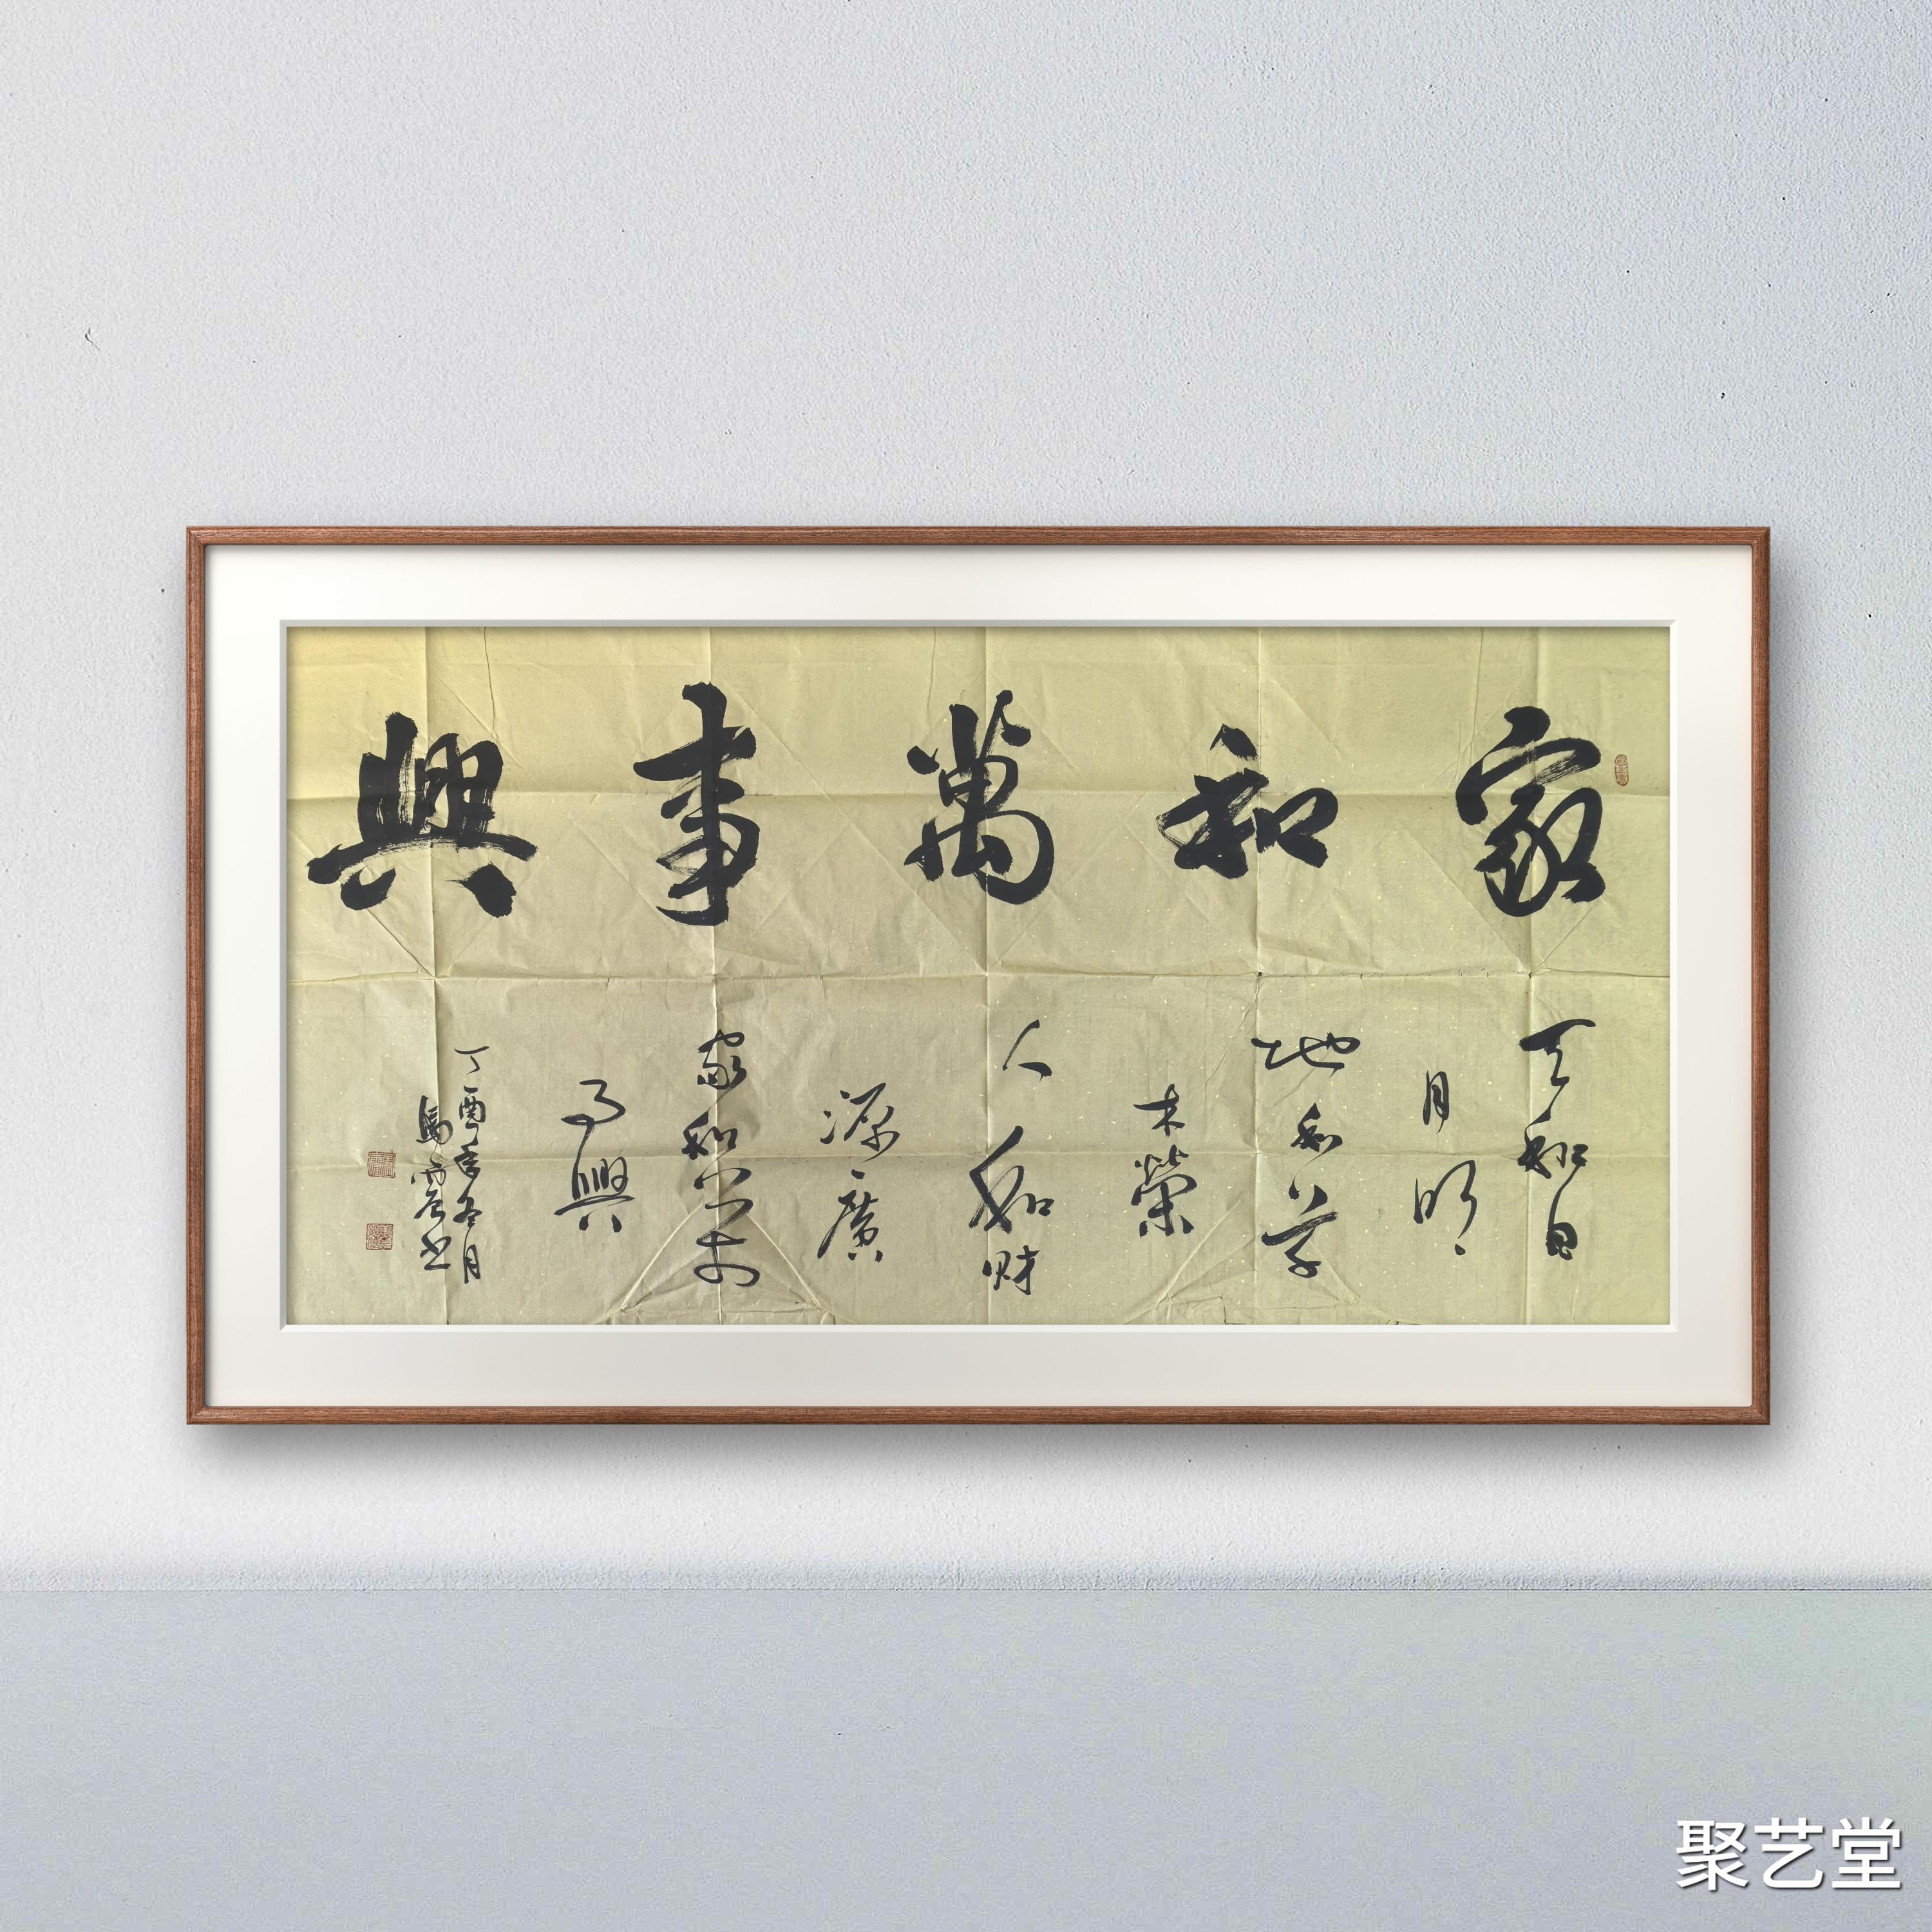 家和萬事興
天和日
月明
地和草
木榮
人和財
源廣
家和萬
事興
丁酉年冬月
聚艺堂